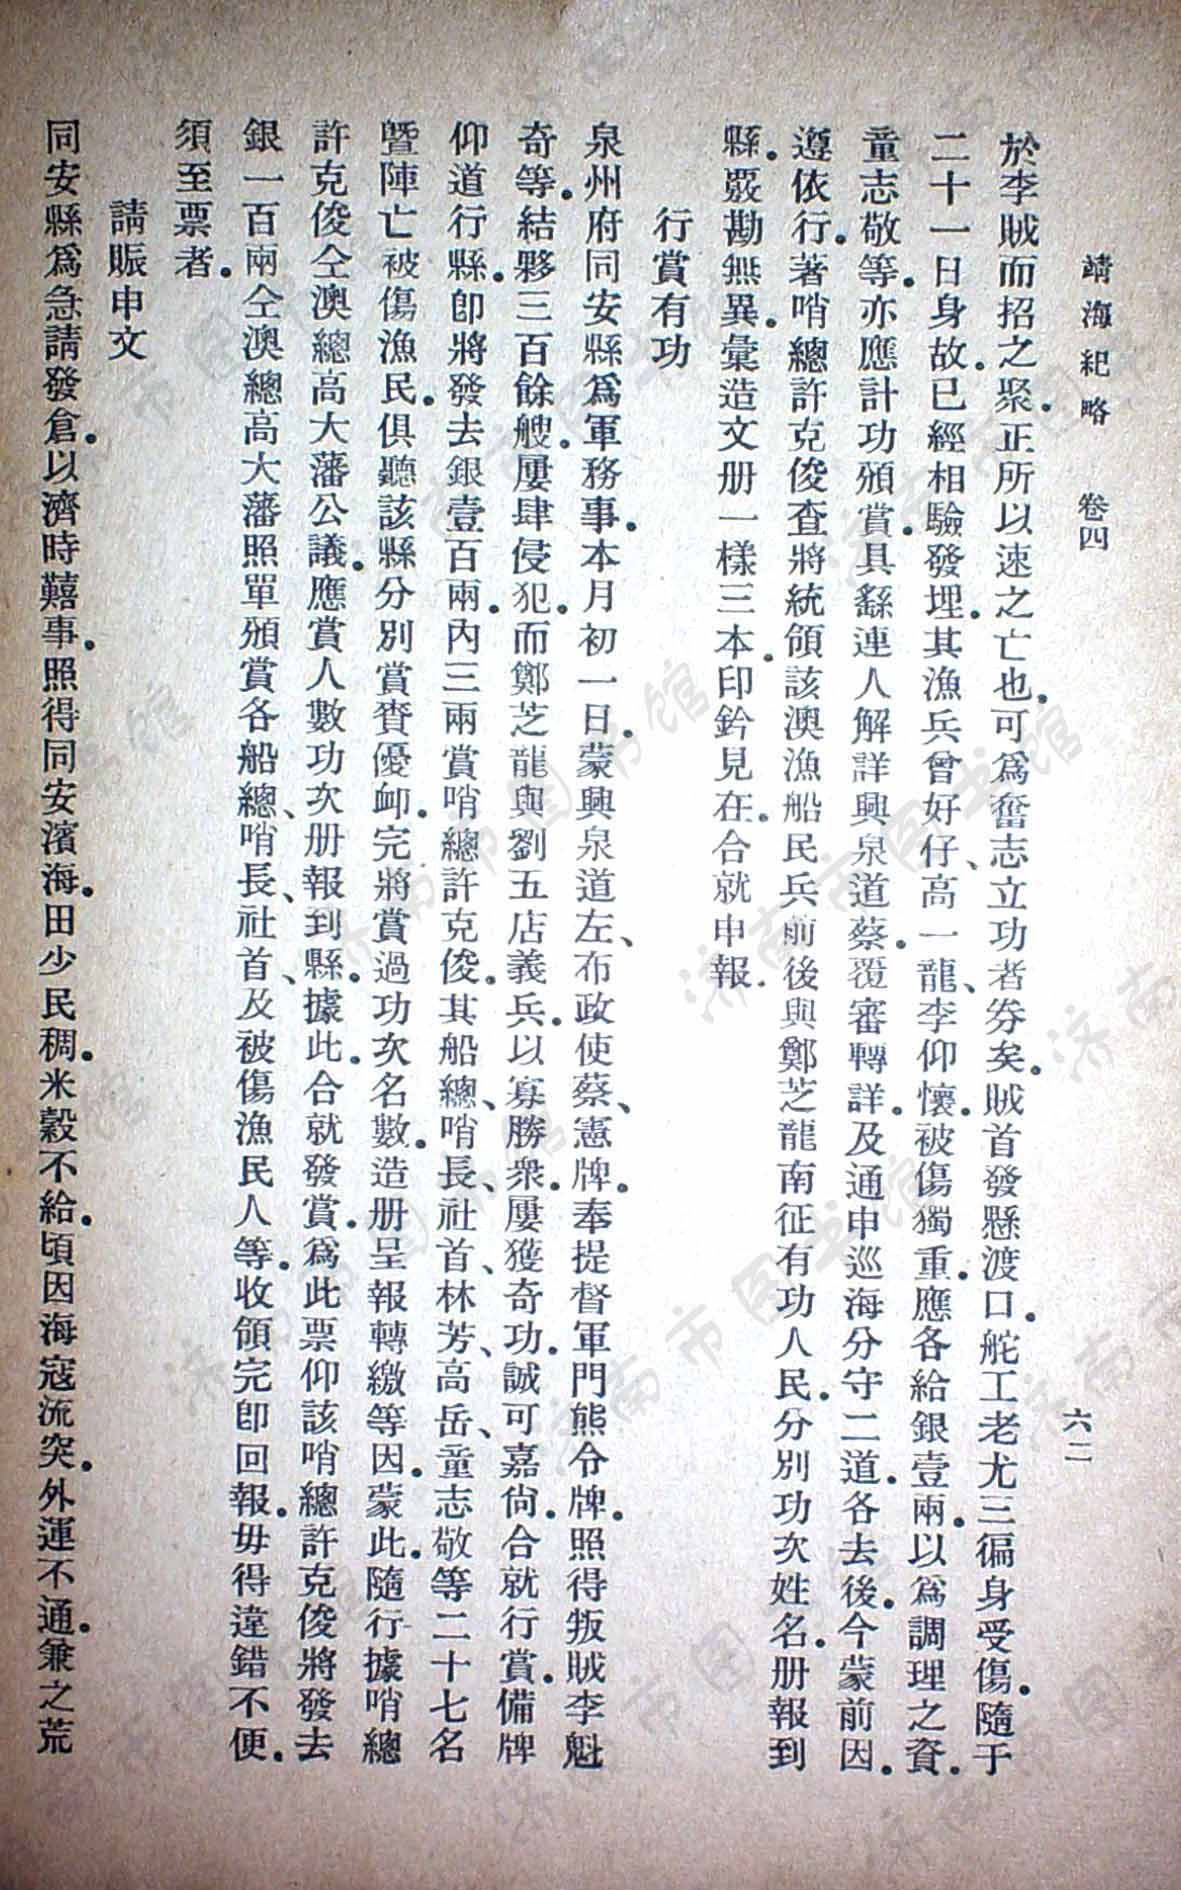 靖海紀略　卷四　六二
於李賊而招之聚。正所以速之亡也。可爲奮志立功者券矣。賊首發懸渡口。舵工老尤三徧身受傷。隨于
二十一日身故。已經相驗發埋。其漁兵曾好仔、高一龍、李仰懷。被傷獨重。應各給銀壹兩。以爲調理之資。
童志敬等。亦應計功頒賞。具繇連人解詳興泉道蔡。覆審轉詳。及通申巡海分守二道。各去後。今蒙前因。
遵依行。著哨總許克俊査將統領該澳漁船民兵前後與鄭芝龍南征有功人民。分別功次姓名。册報到
縣。覈勘無異。彙造文册一樣三本。印鈐見在。合就申報。
行賞有功
泉州府同安縣爲軍務事。本月初一日。蒙興泉道左、布政使蔡、憲牌。奉提督軍門熊令牌。照得叛賊李魁
奇等。結夥三百餘艘。屢肆侵犯。而鄭芝龍與劉五店義兵。以寡勝衆。屢獲奇功。誠可嘉尙。合就行賞。備牌
仰道行縣。卽將發去銀壹百兩。內三兩賞哨總許克俊。其船總、哨長、社首、林芳、高岳、童志敬等二十七名
曁陣亡被傷漁民。俱聽該縣分別賞賚優卹。完將賞過功次名數。造册呈報轉繳等因。蒙此。隨行據哨總
許克俊仝澳總高大藩公議。應賞人數功次册報到縣。據此。合就發賞。爲此票仰該哨總許克俊將發去
銀一百兩仝澳總高大藩照單頒賞各船總、哨長、社首、及被傷漁民人等。收領完卽回報。毋得違錯不便。
須至票者。
請賑申文
同安縣爲急請發倉。以濟時囏事。照得同安濱海。田少民稠。米穀不給。頃因海寇流突。外運不通。兼之荒